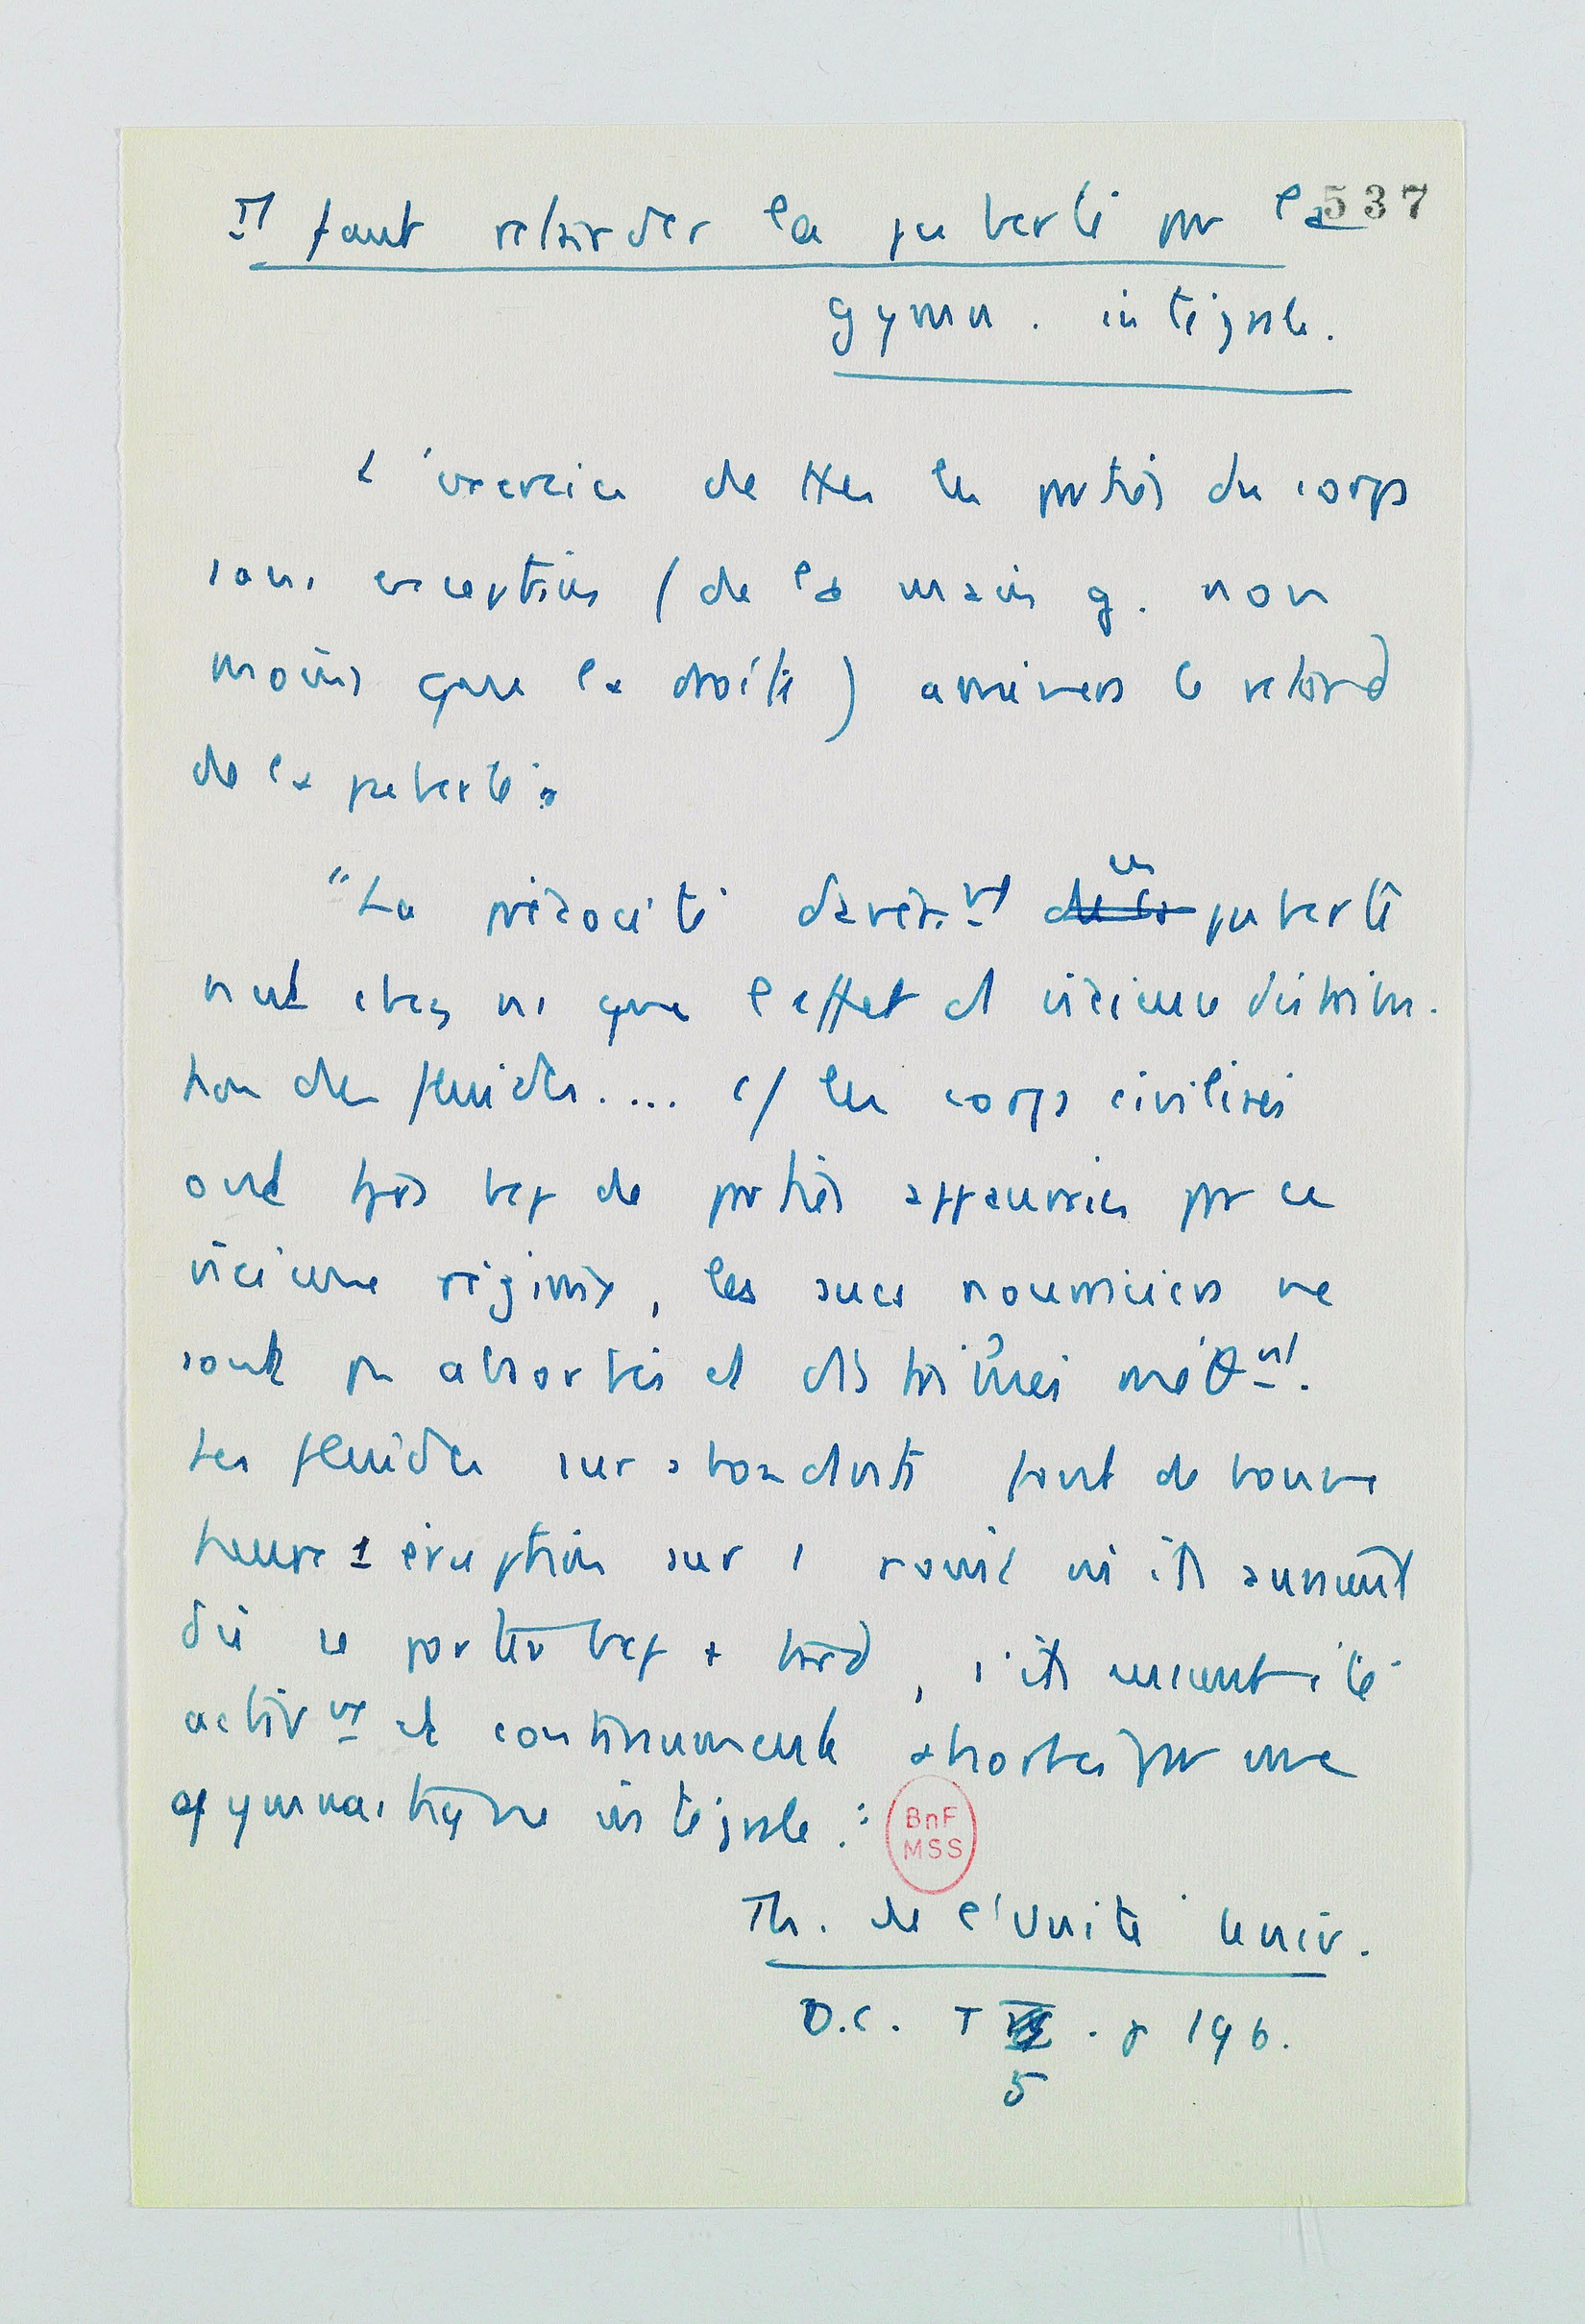 Il faut retarder la puberté par la 537
gymn. intégrale.
L'exercice de ttes les parties du corps
sans exception (de la main g. non
moins que la droite) amènera le retard
de la puberté.
"La précocité en puberté
n'est chez ns que l'effet d vicieuse distribu-
tion des fluides.... c/ les corps civilisés
ont très bcp de parties appauvries par ce
vicieux régime, les sucs nourriciers ne
sont pas absorbés et distribués méth^nt.
Les fluides surabondants font de bonne
heure 1 éruption sur 1 où ils auraient
dû se porter bcp + tard, s'ils eussent été
activ^nt et continument absorbés par une
gymnastique intégrale."
BnF
MSS
Th. de l'Unité Univ.
O.C. T . p 196.
5